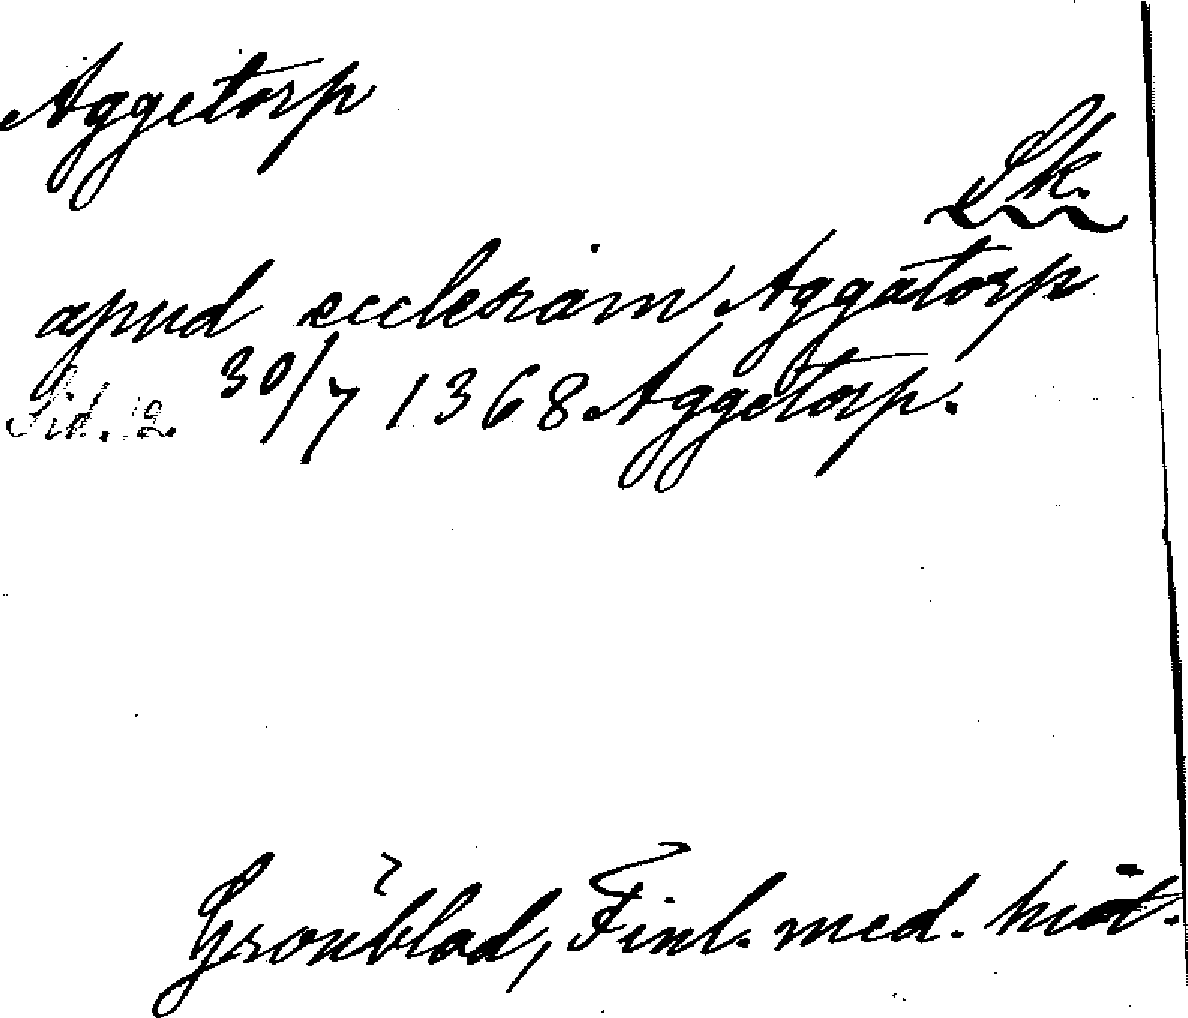 Aggetorp
Sk.
apud ecclesiam Aggatorp
Sid. 2. 30/7 1368 Aggetorp.
Grönblad, Finl. med. hist.